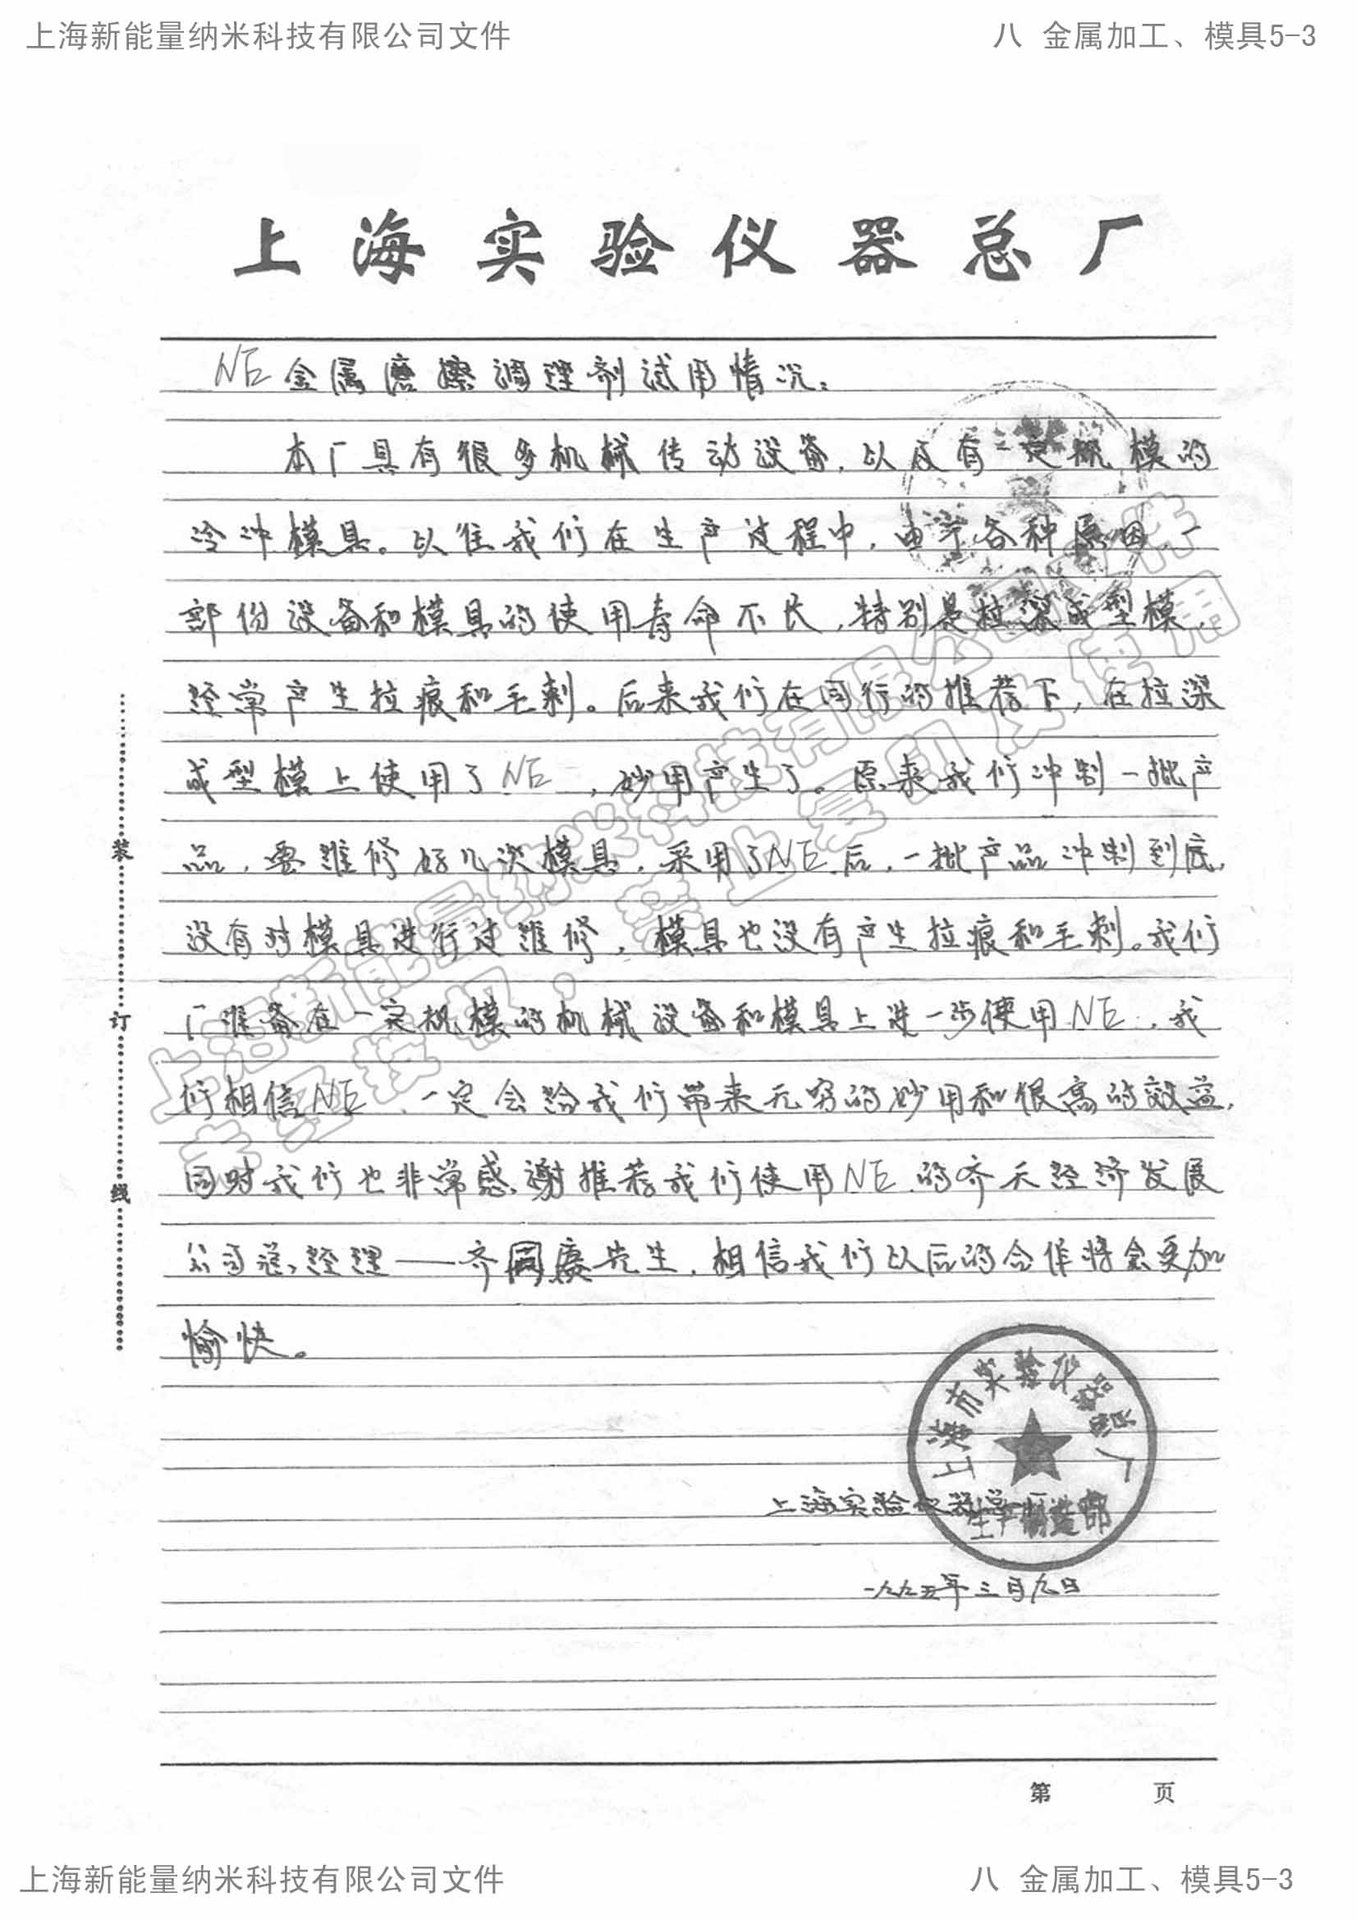 上海新能量纳米科技有限公司文件
八 金属加工、模具5-3
上海实验仪器总厂
NE金属磨擦调理剂试用情况:
本厂具有很多机械传动设备,以及有一定规模的
冷冲模具。以往我们在生产过程中,由于各种原因,一
部份设备和模具的使用寿命不长,特别是拉深成型模,
经常产生拉痕和毛刺。后来我们在同行的推荐下,在拉深
成型模上使用了NE,妙用产生了。原来我们冲制一批产
品,要维修好几次模具,采用了NE后,一批产品冲制到底,
没有对模具进行过维修,模具也没有产生拉痕和毛刺。我们
厂准备在一定规模的机械设备和模具上进一步使用NE,我
们相信NE,一定会给我们带来无穷的妙用和很高的效益,
同时我们也非常感谢推荐我们使用NE的齐天经济发展
公司总经理——齐国庆先生,相信我们以后的合作将会更加
愉快。
上海市实验仪器总厂
生产制造部
上海实验仪器总厂
一九九五年三月九日
装
订
线
上海新能量纳米科技有限公司文件
未经授权,禁止复印及使用
第 页
上海新能量纳米科技有限公司文件
八 金属加工、模具5-3